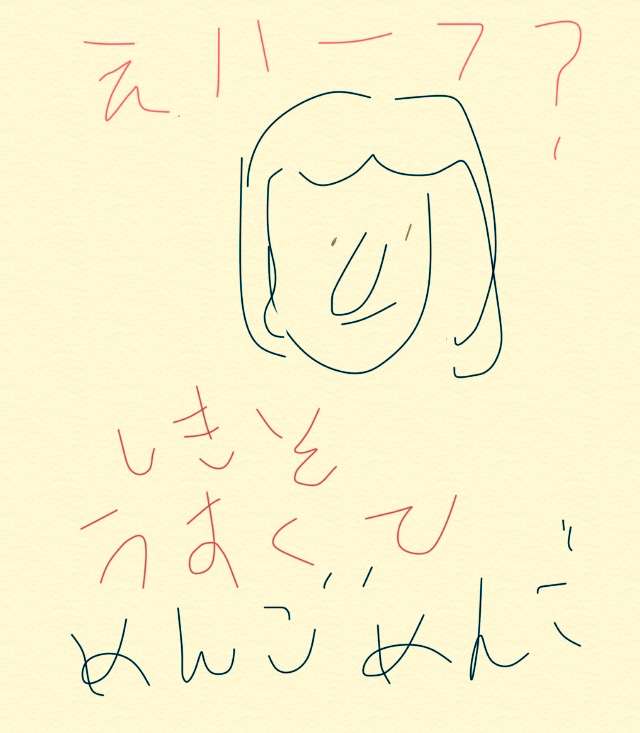 えハーフ?
しきそ
うすくて
めんごめんご